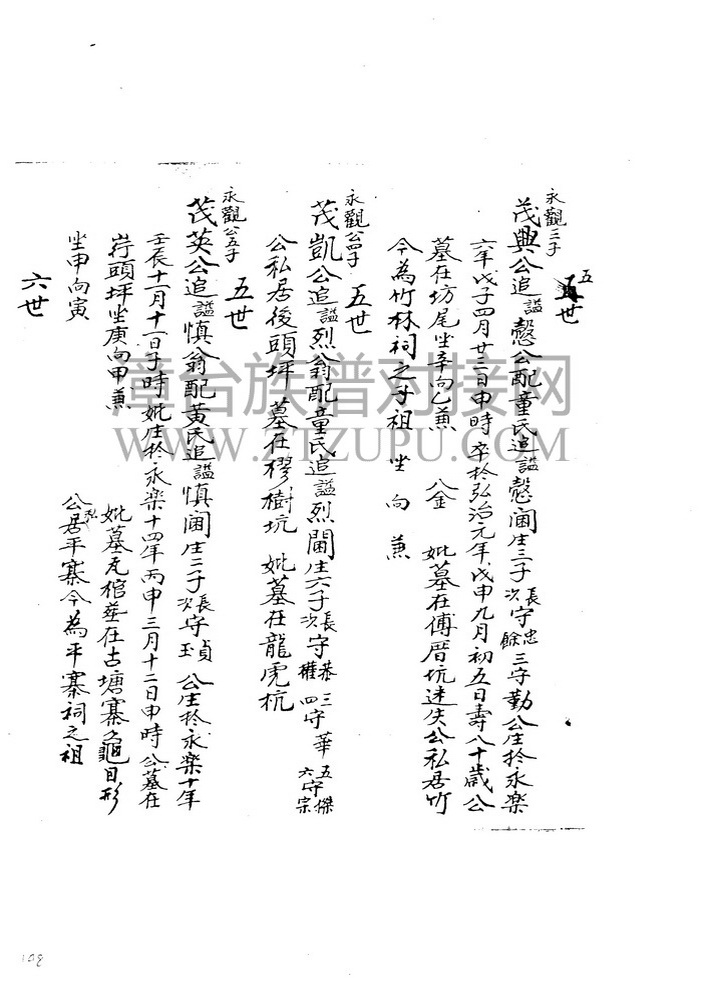 五世
永觀三子
茂興公追諡愨公配童氏追諡愨閫生三子長守忠次餘三守勤公生於永樂
六年戊子四月廿三日申時卒於弘治元年戊申九月初五日壽八十歲公
墓在坊尾坐辛向乙兼 八金 妣墓在傅厝坑迷失公私居竹
今為竹林祠之子祖 坐 向 兼
五世
永觀公四子
茂凱公追諡烈翁配童氏追諡烈閫生六子長守恭次權三守華四守五傑六守宗
公私居後頭坪 墓在樛樹坑 妣墓在龍虎杭
五世
永觀公五子
茂英公追諡慎翁配黃氏追諡慎閫生二子長守貞次玉 公生於永樂十年
壬辰十一月十一日子時妣生於永樂十四年丙申三月十二日申時公墓在
崶頭坪坐庚向甲兼 妣墓瓦棺葬在古塘寨龜目形
坐申向寅 公私居平寨今為平寨祠之祖
六世
漳台族谱对接网
WWW.ZTZUPU.COM
108